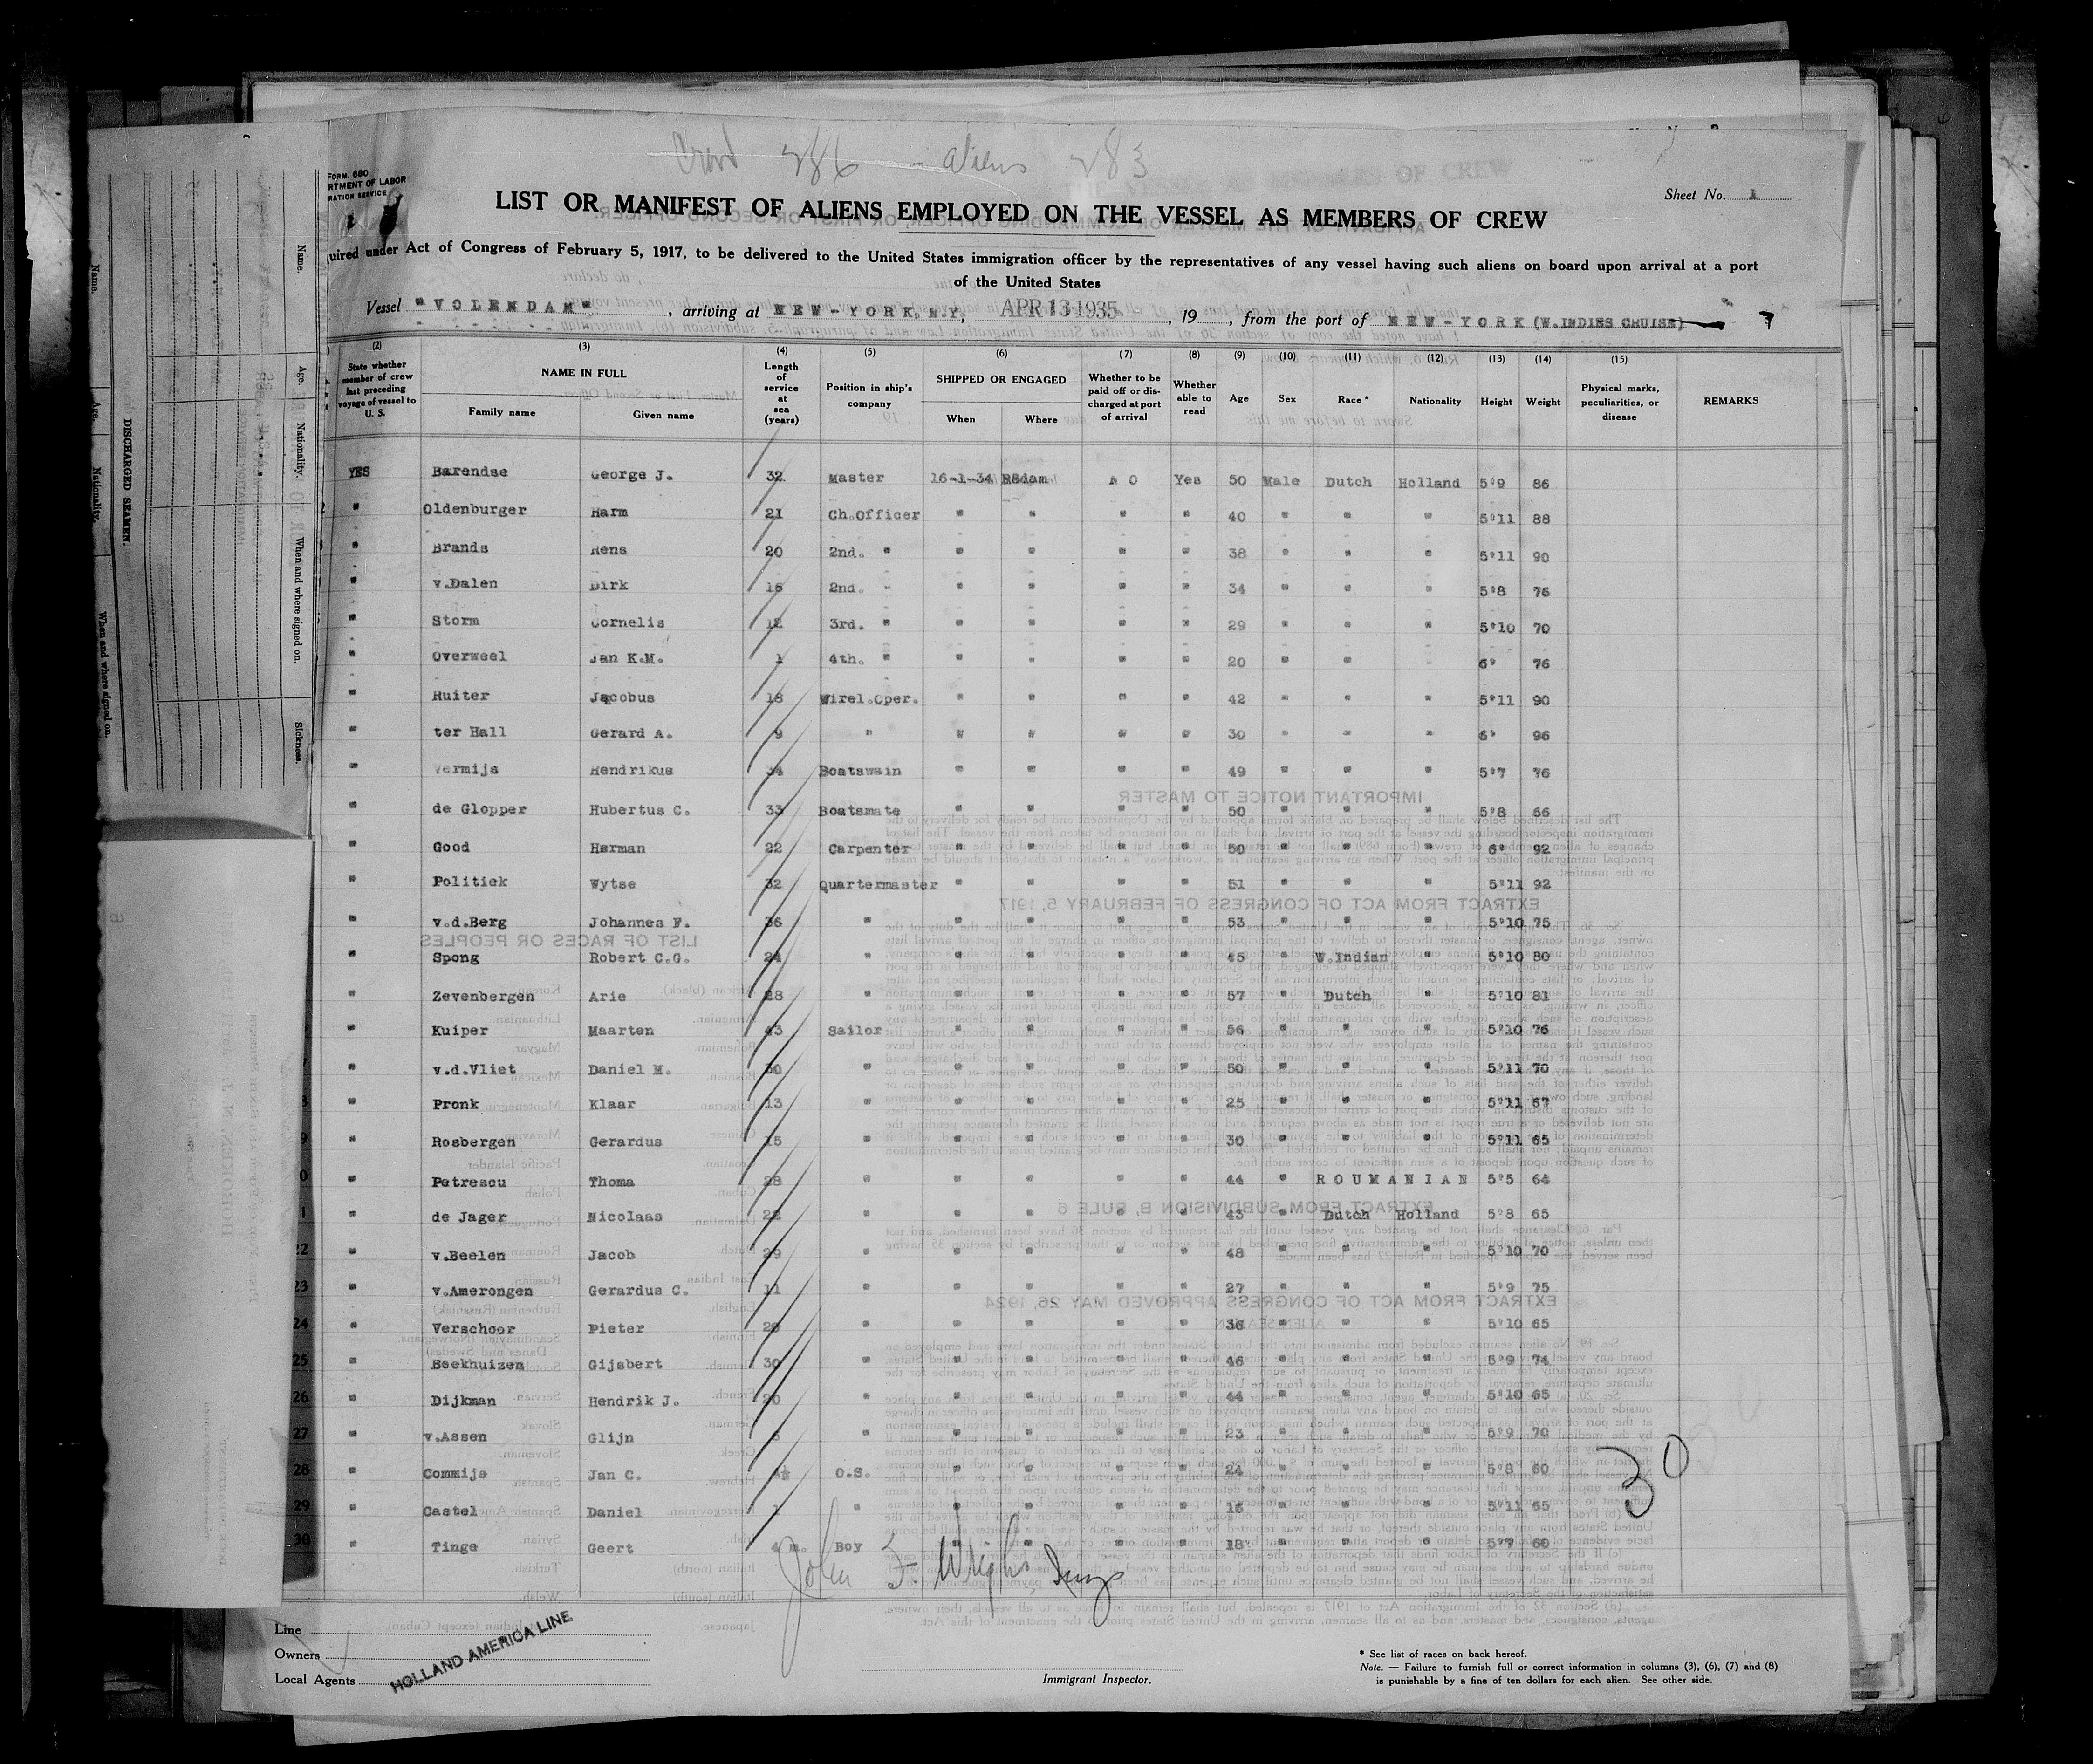 Crew 286 - aliens 283
FORM. 680
RTMENT OF LABOR
RATION SERVICE
Sheet No. 1
LIST OR MANIFEST OF ALIENS EMPLOYED ON THE VESSEL AS MEMBERS OF CREW
uired under Act of Congress of February 5, 1917, to be delivered to the United States immigration officer by the representatives of any vessel having such aliens on board upon arrival at a port
of the United States
Vessel "VOLENDAM", arriving at NEW-YORK.N.Y, APR 13 1935, 19, from the port of NEW-YORK (W.INDIES CRUISE)
(2) (3) (4) (5) (6) (7) (8) (9) (10) (11) (12) (13) (14) (15)
State whether member of crew last preceding voyage of vessel to U. S. NAME IN FULL Family name Given name Length of service at sea (years) Position in ship's company SHIPPED OR ENGAGED When Where Whether to be paid off or discharged at port of arrival Whether able to read Age Sex Race * Nationality Height Weight Physical marks, peculiarities, or disease REMARKS
YES Barendse George J. 32 Master 16-1-34 Rdam Yes 50 Male Dutch Holland 5'9 86
" Oldenburger Harm 21 Ch.Officer " " " " 40 " " " 5'11 88
" Brands Rens 20 2nd. " " " " " 38 " " " 5'11 90
" v.Dalen Dirk 16 2nd. " " " " " 34 " " " 5'8 76
" Storm Cornelis 12 3rd. " " " " " 29 " " " 5'10 70
" Overweel Jan K.M. 1 4th. " " " " " 20 " " " 6' 76
" Ruiter Jacobus 18 Wirel.Oper. " " " " 42 " " " 5'11 90
" ter Hall Gerard A. 9 " " " " " 30 " " " 6' 96
" Vermijs Hendrikus 34 Boatswain " " " " 49 " " " 5'7 76
" de Glopper Hubertus C. 33 Boatsmate " " " " 50 " " " 5'8 66
" Good Herman 22 Carpenter " " " " 50 " " " 6' 92
" Politiek Wytse 32 Quartermaster " " " " 51 " " " 5'11 92
" v.d.Berg Johannes F. 36 " " " " " 53 " " " 5'10 75
" Spong Robert C.G. 24 " " " " " 45 " W.Indian " 5'10 80
" Zevenbergen Arie 28 " " " " " 57 " Dutch " 5'10 81
" Kuiper Maarten 43 Sailor " " " " 56 " " " 5'10 76
" v.d.Vliet Daniel M. 30 " " " " " 50 " " " 5'11 70
" Pronk Klaar 13 " " " " " 25 " " " 5'11 67
" Rosbergen Gerardus 15 " " " " " 30 " " " 5'11 65
" Petrescu Thoma 28 " " " " " 44 " ROUMANIAN 5'5 64
" de Jager Nicolaas 22 " " " " " 43 " Dutch Holland 5'8 65
22 " v.Beelen Jacob 29 " " " " " 48 " " " 5'10 70
23 " v.Amerongen Gerardus C. 11 " " " " " 27 " " " 5'9 75
24 " Verschoor Pieter " " " " " 36 " " " 5'10 65
25 " Beekhuizen Gijsbert 30 " " " " " 46 " " " 5'9 74
26 " Dijkman Hendrik J. 20 " " " " " 44 " " " 5'10 65
27 " v.Assen Glijn " " " " " 23 " " " 5'9 70
28 " Commijs Jan C. 4½ O.S. " " " " 24 " " " 5'8 60
29 " Castel Daniel 1 " " " " " 16 " " " 5'11 65
30 " Tinge Geert 4 m. Boy " " " " 18 " " " 5'7 60
30
John F. Wright Insp
Line
Owners
Local Agents
HOLLAND AMERICA LINE
Immigrant Inspector.
* See list of races on back hereof.
Note. — Failure to furnish full or correct information in columns (3), (6), (7) and (8)
is punishable by a fine of ten dollars for each alien. See other side.
Name.
Age.
Nationality.
When and where signed on.
Sickness.
DISCHARGED SEAMEN.
Name.
Age.
Nationality.
When and where signed on.